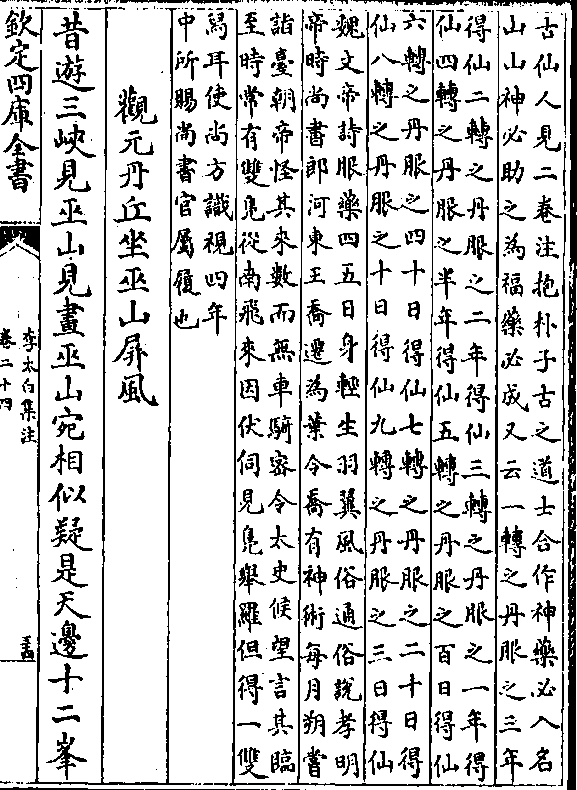 古仙人見二卷注抱朴子古之道士合作神藥必入名
山山神必助之為福藥必成又云一轉之丹服之三年
得仙二轉之丹服之二年得仙三轉之丹服之一年得
仙四轉之丹服之半年得仙五轉之丹服之百日得仙
六轉之丹服之四十日得仙七轉之丹服之二十日得
仙八轉之丹服之十日得仙九轉之丹服之三日得仙
魏文帝詩服藥四五日身輕生羽翼風俗通俗說孝明
帝時尚書郎河東王喬遷為葉令喬有神術每月朔嘗
詣臺朝帝怪其來數而無車騎密令太史候望言其臨
至時常有雙鳧從南飛來因伏伺見鳧舉羅但得一雙
舄耳使尚方識視四年
中所賜尚書官屬履也
觀元丹丘坐巫山屏風
昔遊三峽見巫山見畫巫山宛相似疑是天邊十二峯
欽定四庫全書
李太白集注
卷二十四